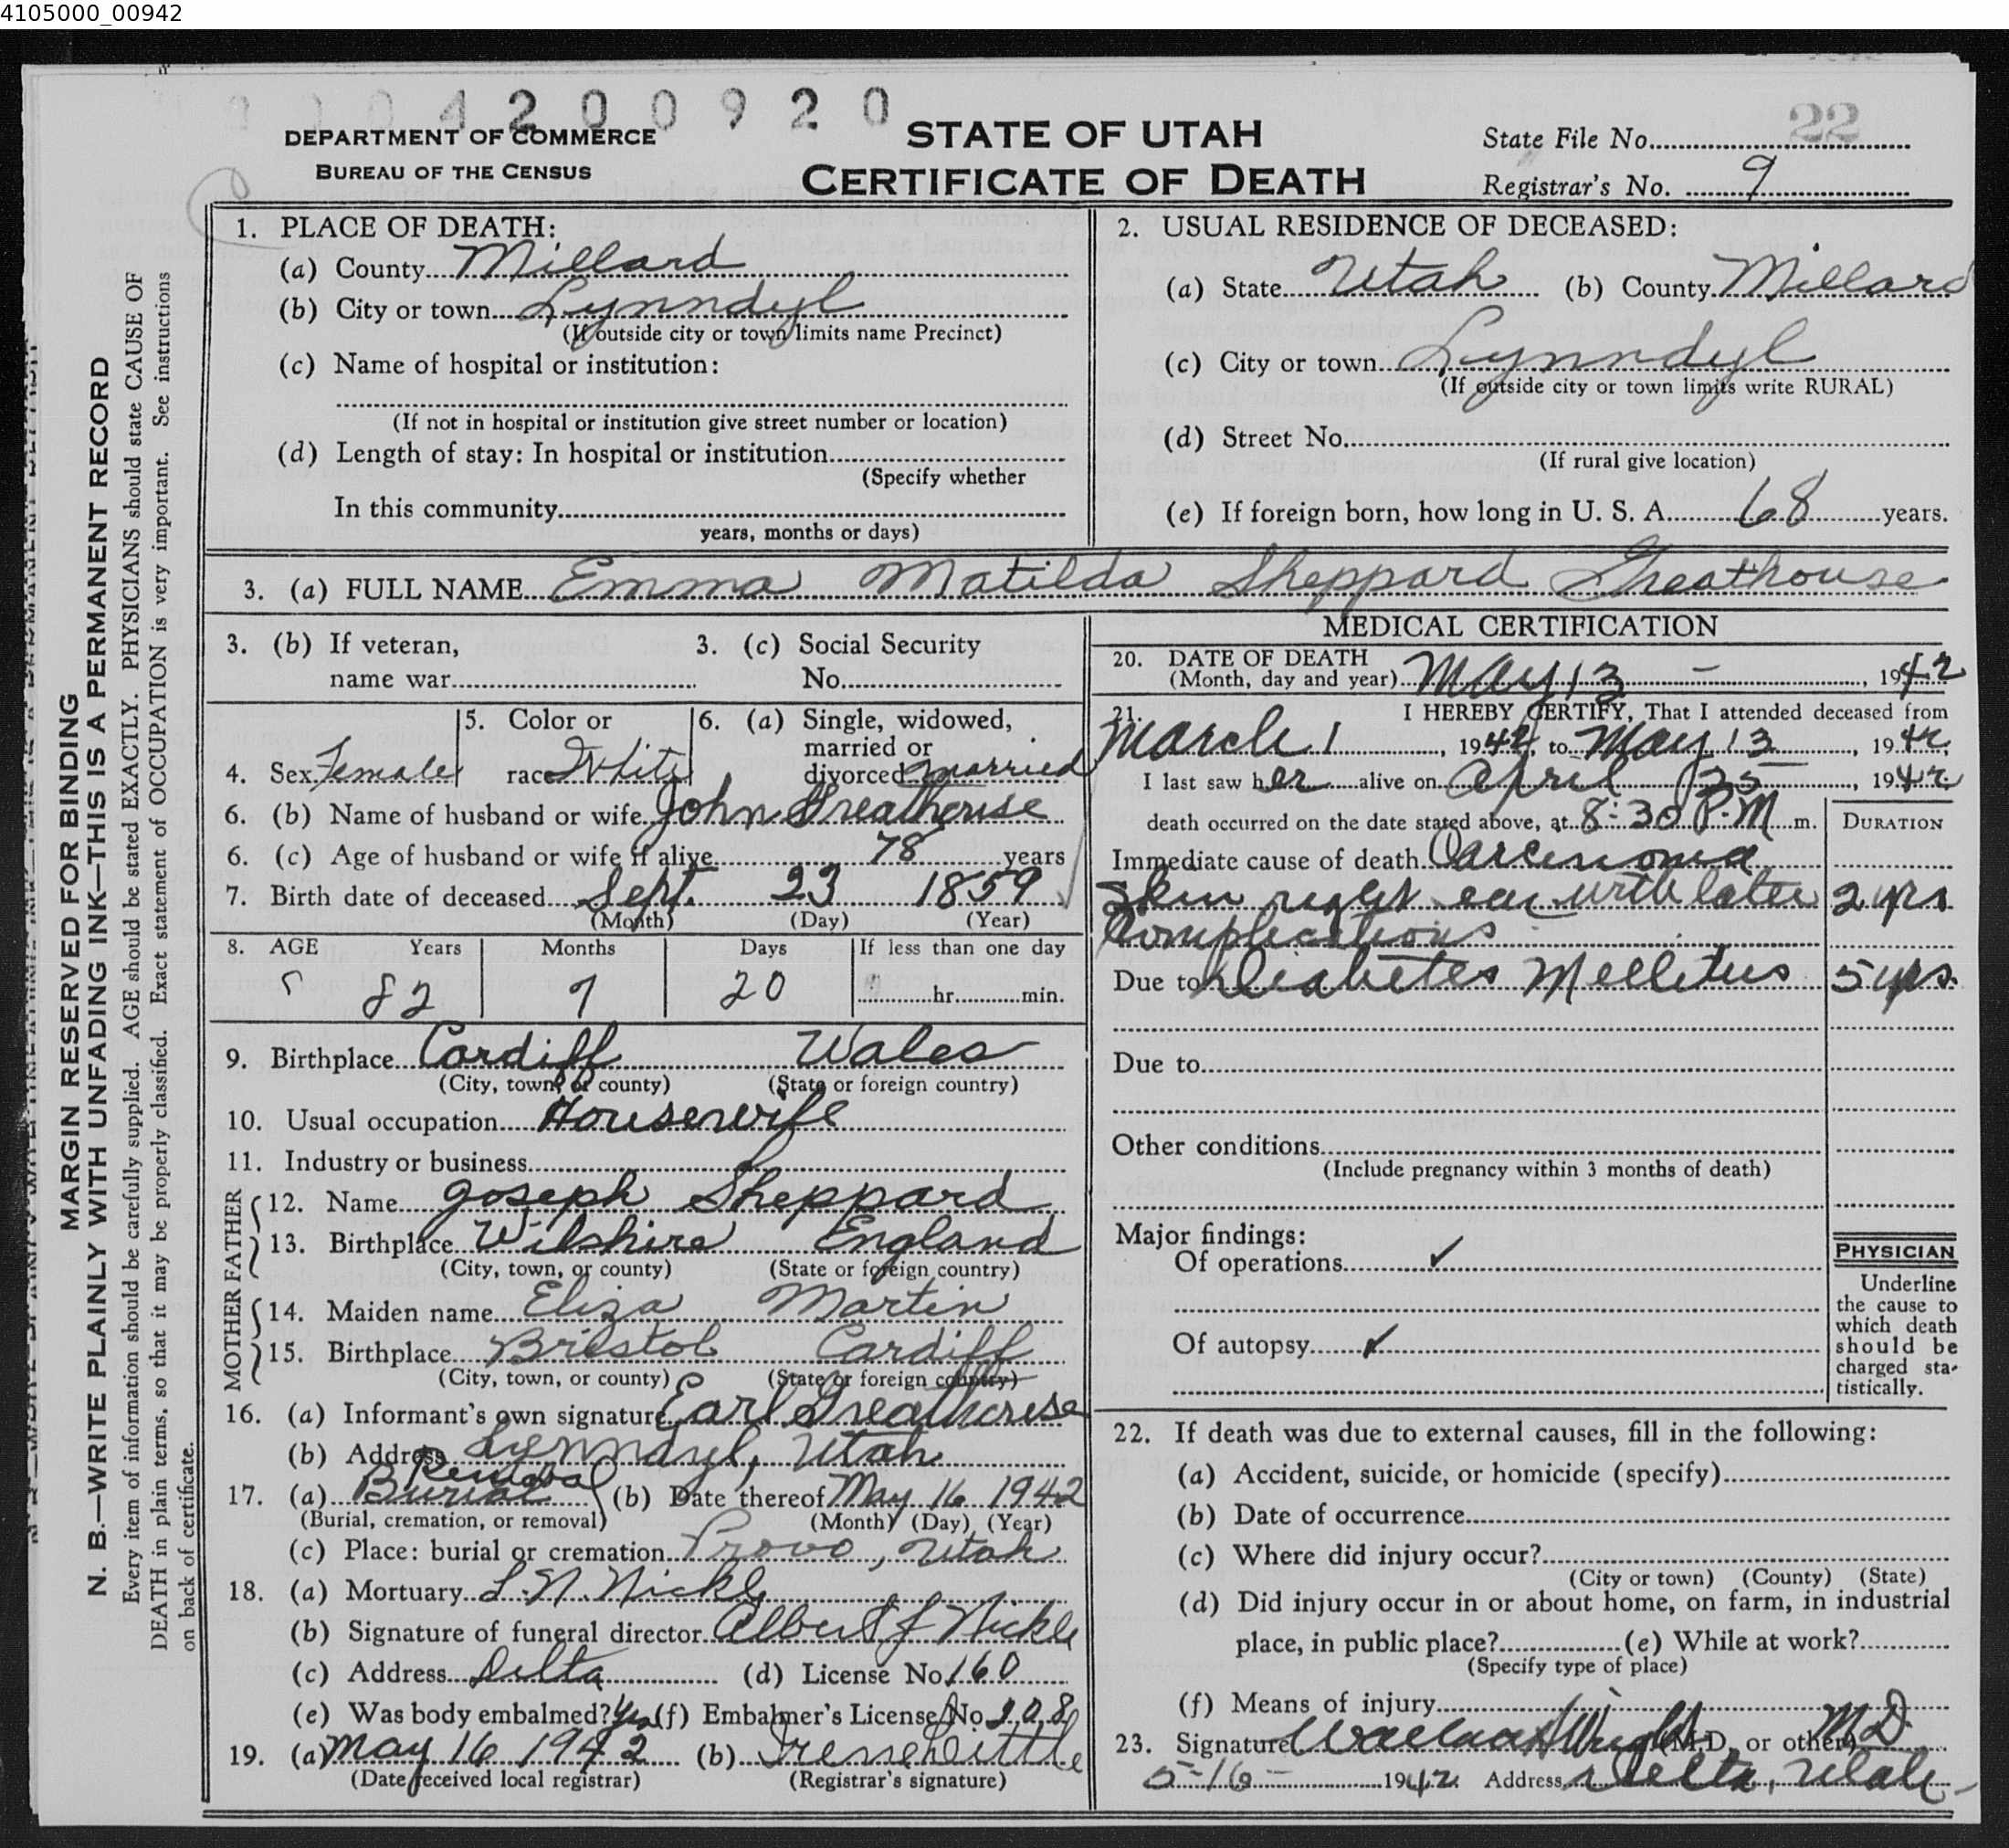 4105000_00942
4 2 0 0 9 2 0
DEPARTMENT OF COMMERCE
BUREAU OF THE CENSUS
STATE OF UTAH
CERTIFICATE OF DEATH
22
State File No.
Registrar's No. 9
MARGIN RESERVED FOR BINDING
N. B.—WRITE PLAINLY WITH UNFADING INK—THIS IS A PERMANENT RECORD
Every item of information should be carefully supplied. AGE should be stated EXACTLY. PHYSICIANS should state CAUSE OF
DEATH in plain terms, so that it may be properly classified. Exact statement of OCCUPATION is very important. See instructions
on back of certificate.
1. PLACE OF DEATH:
(a) County Millard
(b) City or town Lynndyl
(If outside city or town limits name Precinct)
(c) Name of hospital or institution:
(If not in hospital or institution give street number or location)
(d) Length of stay: In hospital or institution
(Specify whether
In this community
years, months or days)
2. USUAL RESIDENCE OF DECEASED:
(a) State Utah (b) County Millard
(c) City or town Lynndyl
(If outside city or town limits write RURAL)
(d) Street No.
(If rural give location)
(e) If foreign born, how long in U. S. A. 68 years.
3. (a) FULL NAME Emma Matilda Sheppard Greathouse
3. (b) If veteran,
name war
3. (c) Social Security
No.
4. Sex Female
5. Color or
race White
6. (a) Single, widowed,
married or
divorced married
6. (b) Name of husband or wife John Greathouse
6. (c) Age of husband or wife if alive 78 years
7. Birth date of deceased Sept. 23 1859
(Month) (Day) (Year)
8. AGE Years Months Days If less than one day
82 7 20 hr. min.
9. Birthplace Cardiff Wales
(City, town, or county) (State or foreign country)
10. Usual occupation Housewife
11. Industry or business
FATHER
12. Name Joseph Sheppard
13. Birthplace Wilshire England
(City, town, or county) (State or foreign country)
MOTHER
14. Maiden name Eliza Martin
15. Birthplace Bristol Cardiff
(City, town, or county) (State or foreign country)
16. (a) Informant's own signature Earl Greathouse
(b) Address Lynndyl, Utah
Removal
17. (a) Burial (b) Date thereof May 16 1942
(Burial, cremation, or removal) (Month) (Day) (Year)
(c) Place: burial or cremation Provo, Utah
18. (a) Mortuary L. N. Nickle
(b) Signature of funeral director Albert J Nickle
(c) Address Delta (d) License No. 160
(e) Was body embalmed? Yes (f) Embalmer's License No. 208
19. (a) May 16 1942 (b)
(Date received local registrar) (Registrar's signature)
MEDICAL CERTIFICATION
20. DATE OF DEATH
(Month, day and year) May 13 — , 1942
21. I HEREBY CERTIFY, That I attended deceased from
March 1, 1942, to May 13, 1942
I last saw her alive on April 25, 1942
death occurred on the date stated above, at 8:30 P.M m.
DURATION
Immediate cause of death Carcinoma
Skin right ear with later 2 yrs
Complications
Due to Diabetes Mellitus 5 yrs.
Due to
Other conditions
(Include pregnancy within 3 months of death)
Major findings:
Of operations ✓
Of autopsy ✓
PHYSICIAN
Underline
the cause to
which death
should be
charged sta-
tistically.
22. If death was due to external causes, fill in the following:
(a) Accident, suicide, or homicide (specify)
(b) Date of occurrence
(c) Where did injury occur?
(City or town) (County) (State)
(d) Did injury occur in or about home, on farm, in industrial
place, in public place? (e) While at work?
(Specify type of place)
(f) Means of injury
23. Signature Wright (M.D. or other) MD
5-16- 1942 Address Delta, Utah